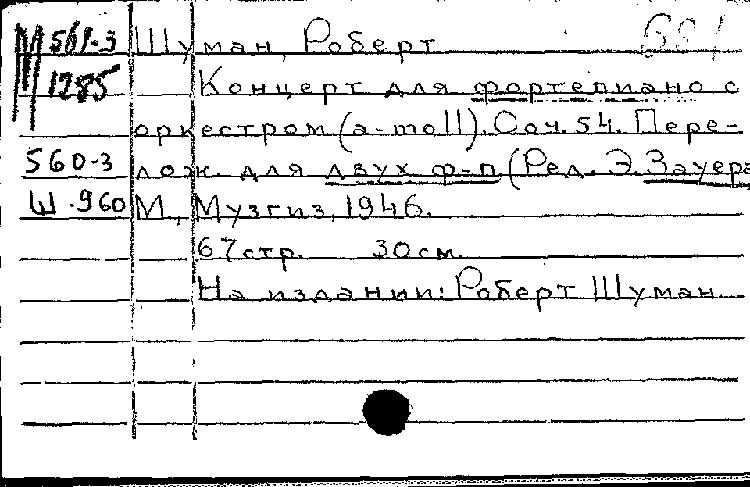 М 561-3 Шуман, Роберт
1285 Концерт для фортепиано с
оркестром (a-moll). Соч. 54. Пере-
560-3 лож. для двух ф-п. (Ред. Э. Зауера
Ш.960 М., Музгиз, 1946.
67 стр. 30 см.
На издании: Роберт Шуман